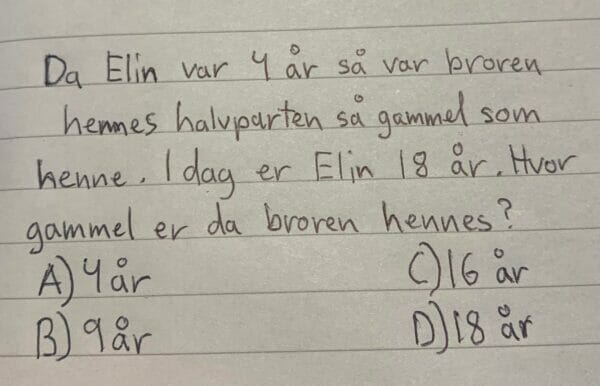 Da Elin var 4 år så var broren
hennes halvparten så gammel som
henne. I dag er Elin 18 år. Hvor
gammel er da broren hennes?
A) 4 år C) 16 år
B) 9 år D) 18 år